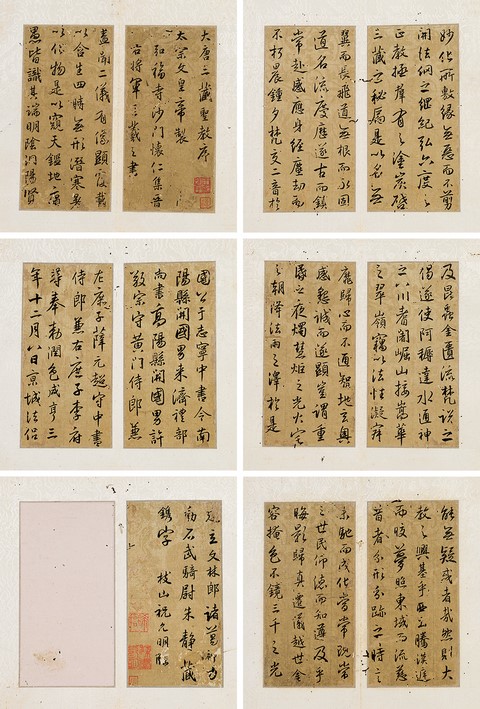 大唐三藏聖教序
太宗文皇帝製
弘福寺沙門懷仁集晉
右將軍王羲之書
蓋聞二儀有像顯覆載
以含生四時無形潛寒暑
以化物是以窺天鑑地庸
愚皆識其端明陰洞陽賢
妙化所敷緣無惡而不剪
開法網之綱紀弘六度之
正教拯群有之塗炭啓
三藏之秘扃是以名無
翼而長飛道無根而永固
道名流慶歷遂古而鎮
常赴感應身經塵劫而
不朽晨鐘夕梵交二音於
國公于志寧中書令南
陽縣開國男來濟禮部
尚書高陽縣開國男許
敬宗守黃門侍郎兼
左庶子薛元超守中書
侍郎兼右庶子李府
等奉敕潤色咸亨三
年十二月八日京城法侶
及昆蟲金匱流梵說之
偈遂使阿耨達水通神
之八川耆闍崛山接嵩華
之翠嶺竊以法性凝寂
靡歸心而不通智地玄奧
感懇誠而遂顯豈謂重
昏之夜燭慧炬之光火宅
之朝降法雨之澤於是
建立文林郎諸葛神力
勒石武騎尉朱靜藏
鐫字 枝山祝允明臨
能無疑惑者哉然則大
教之興基乎西土騰漢庭
而皎夢照東域而流慈
昔者分形分跡之時言
未馳而成化當常現常
之世民仰德而知遵及乎
晦影歸真遷儀越世金
容掩色不鏡三千之光